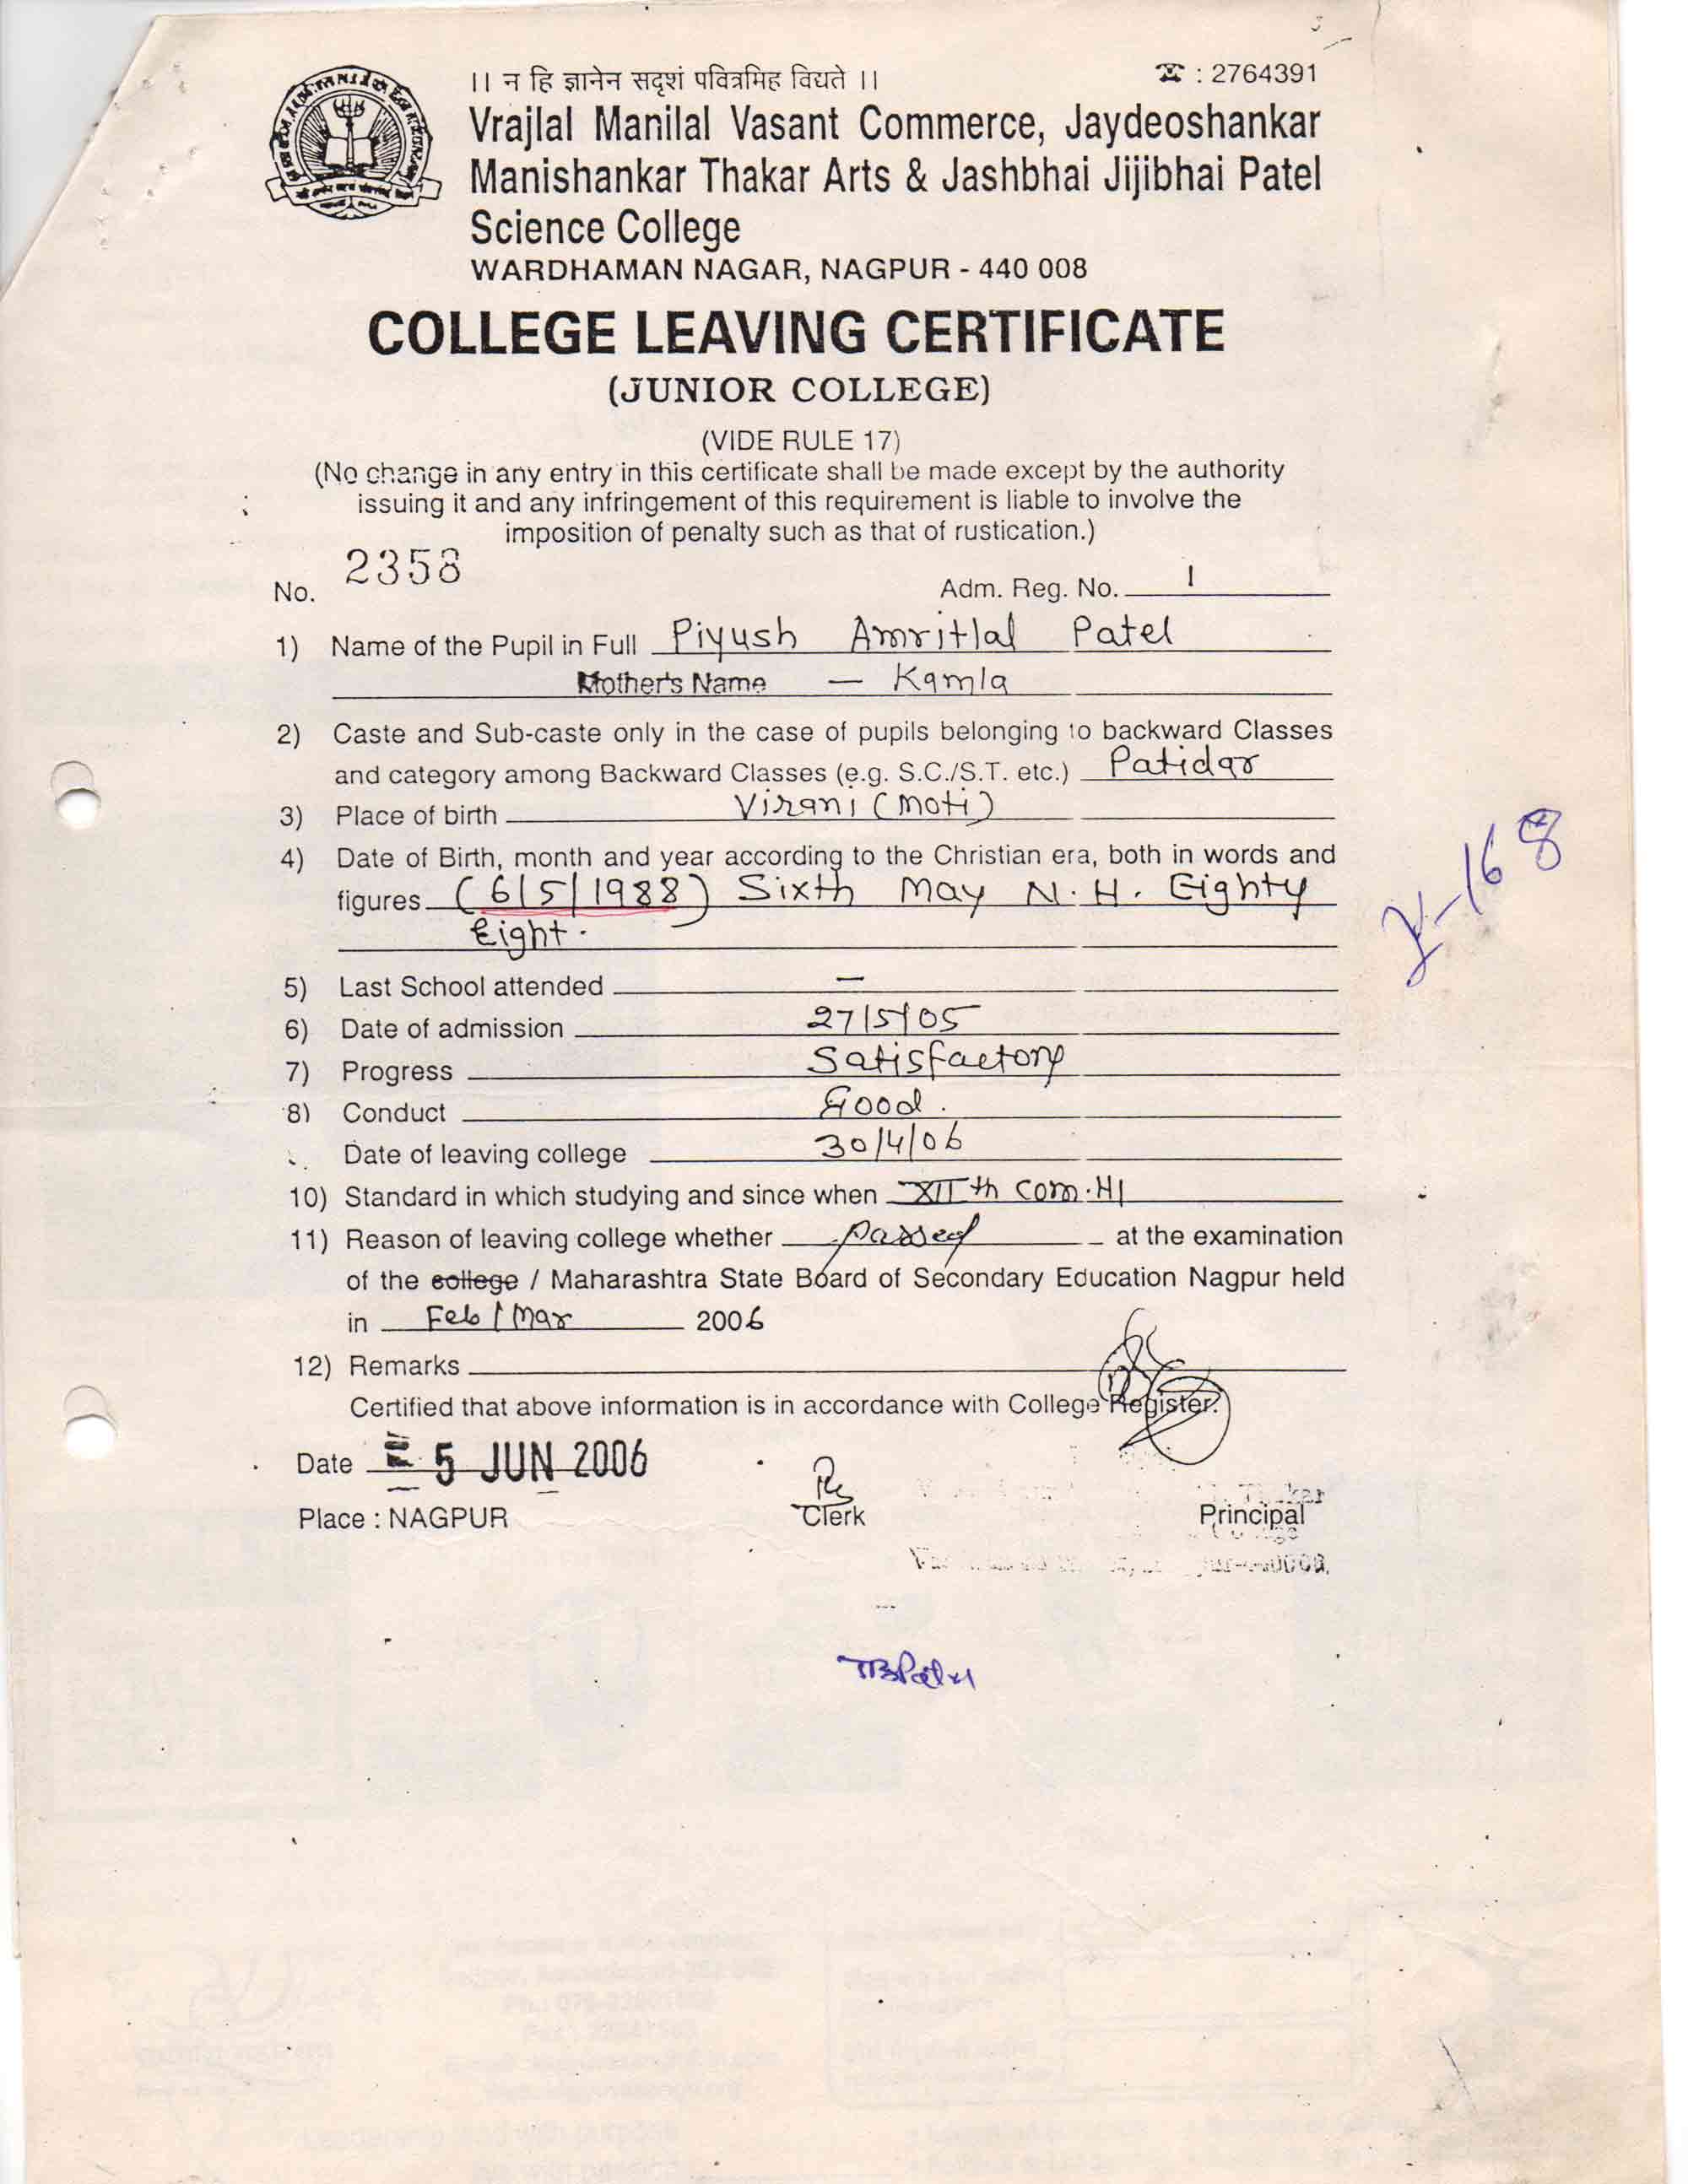 ।। न हि ज्ञानेन सदृशं पवित्रमिह विद्यते ।।
☎ : 2764391
Vrajlal Manilal Vasant Commerce, Jaydeoshankar
Manishankar Thakar Arts & Jashbhai Jijibhai Patel
Science College
WARDHAMAN NAGAR, NAGPUR - 440 008
COLLEGE LEAVING CERTIFICATE
(JUNIOR COLLEGE)
(VIDE RULE 17)
(No change in any entry in this certificate shall be made except by the authority
issuing it and any infringement of this requirement is liable to involve the
imposition of penalty such as that of rustication.)
No. 2358 Adm. Reg. No. 1
1) Name of the Pupil in Full Piyush Amritlal Patel
Mother's Name — Kamla
2) Caste and Sub-caste only in the case of pupils belonging to backward Classes
and category among Backward Classes (e.g. S.C./S.T. etc.) Patidar
3) Place of birth Virani (moti)
4) Date of Birth, month and year according to the Christian era, both in words and
figures (6/5/1988) Sixth May N.H. Eighty
Eight.
5) Last School attended —
6) Date of admission 27/5/05
7) Progress Satisfactory
8) Conduct Good.
Date of leaving college 30/4/06
10) Standard in which studying and since when XIIth Com. H1
11) Reason of leaving college whether passed at the examination
of the college / Maharashtra State Board of Secondary Education Nagpur held
in Feb / Mar 2006
12) Remarks
Certified that above information is in accordance with College Register.
Date 5 JUN 2006
Place : NAGPUR
Clerk
Principal